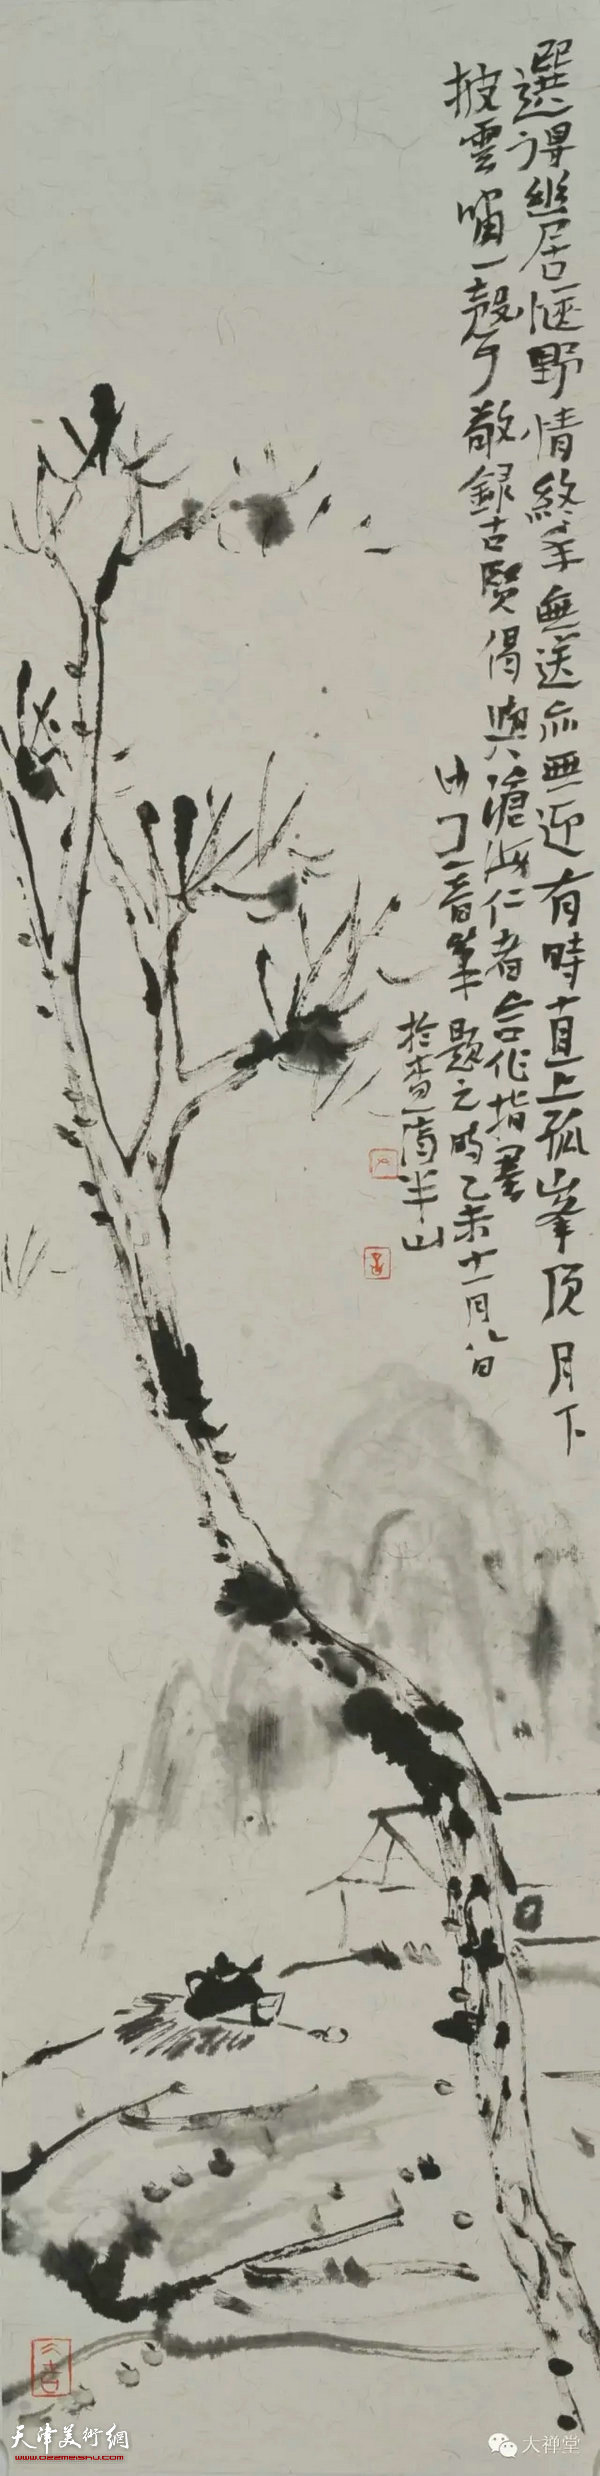 選得幽居愜野情終年無送亦無迎有時直上孤峯頂月下
披雲嘯一聲
敬録古賢偈與滄海仁者合作指墨
沙門一音筆題之時乙未十一月
半山
天津美術網
www.022meishu.com
大禅堂